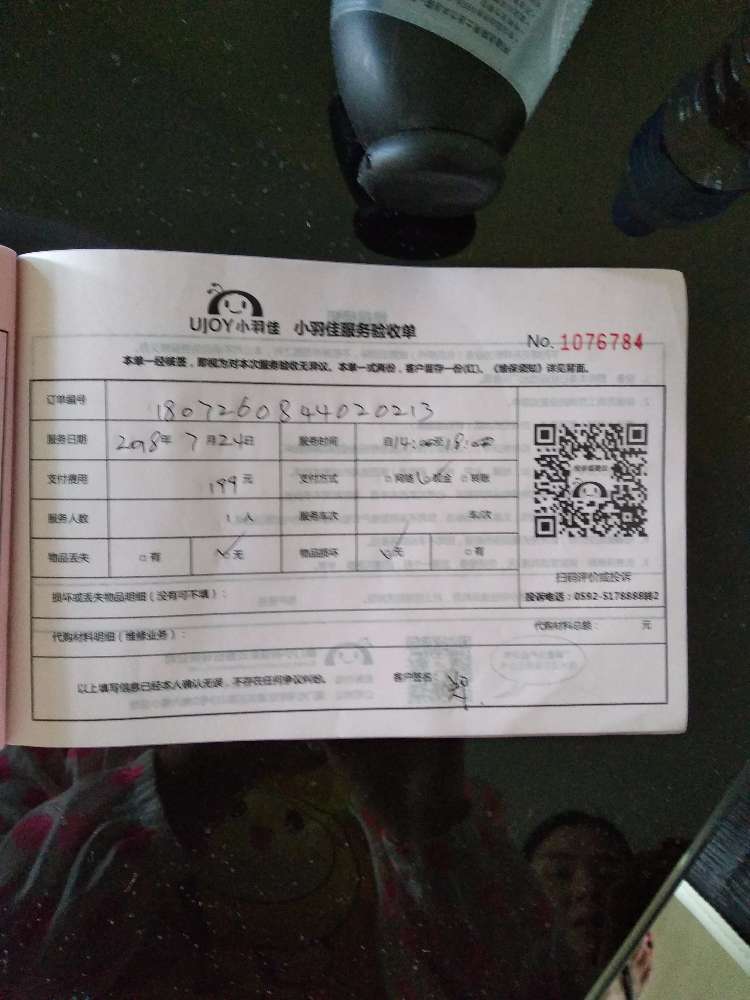 UJOY小羽佳 小羽佳服务验收单
No. 1076784
本单一经核签，即视为对本次服务验收无异议。本单一式两份，客户留存一份(红)。《维保须知》详见背面。
订单编号 180726084402020213
服务日期 2018年7月24日 服务时间 自14:00至18:00
支付费用 199元 支付方式 □网络 □现金 □转账
服务人数 1人 服务车次 车/次
物品丢失 □有 □无 物品损坏 □无 □有
扫码评价或投诉
投诉电话：0592-5178888转2
损坏或丢失物品明细（没有可不填）：
代购材料明细（维修业务）： 代购材料总额： 元
以上填写信息已经本人确认无误，不存在任何争议纠纷。 客户签名：